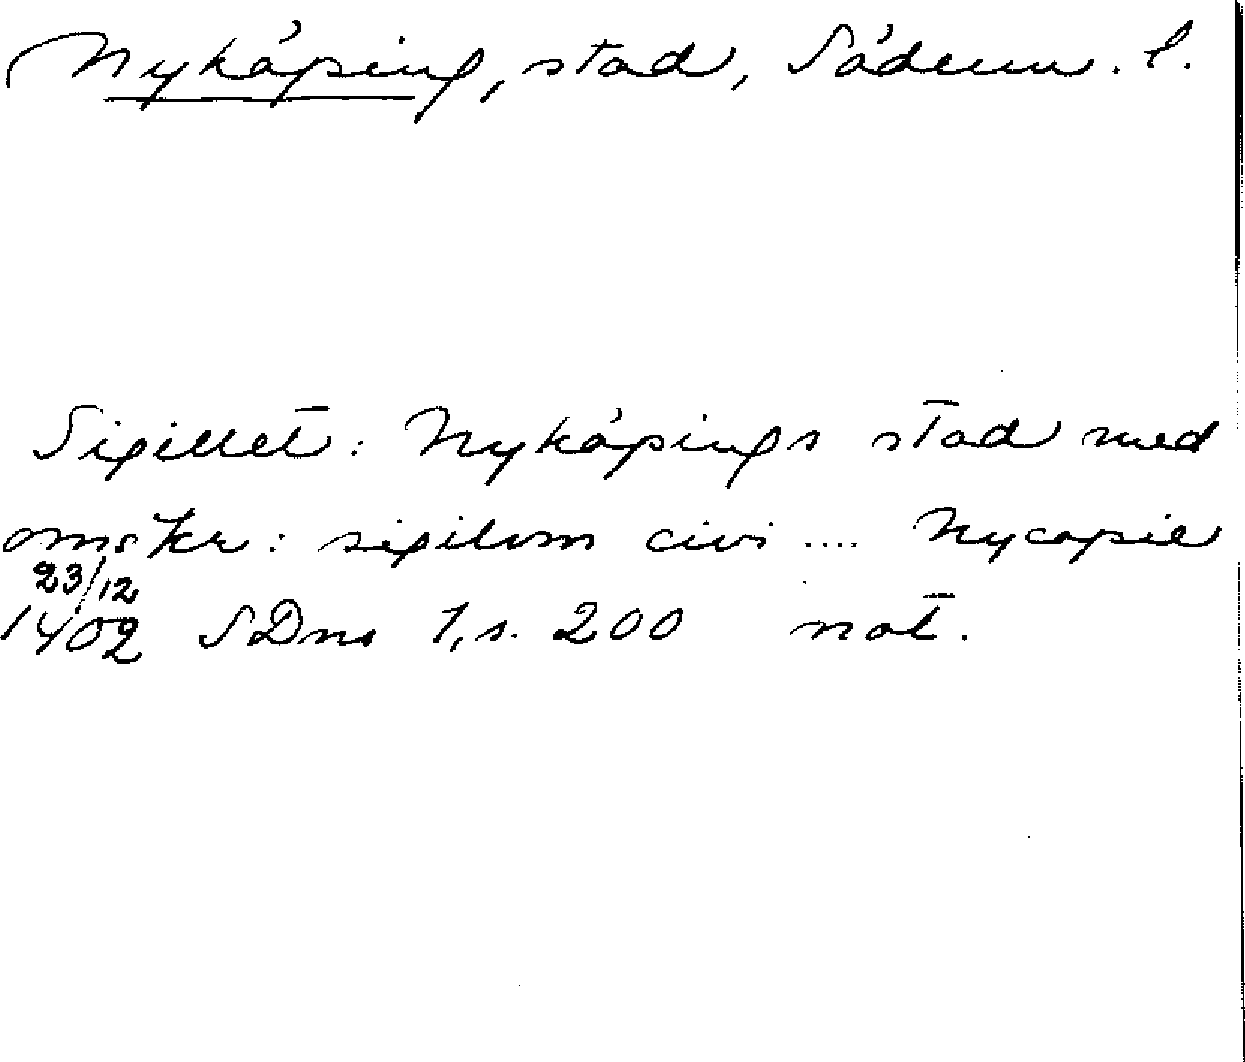 Nyköping, stad, Söderm. l.
Sigillet: Nyköpings stad med
omskr: sigilvm civi .... Nycopie
23/12
1402 SDns 1, s. 200 not.